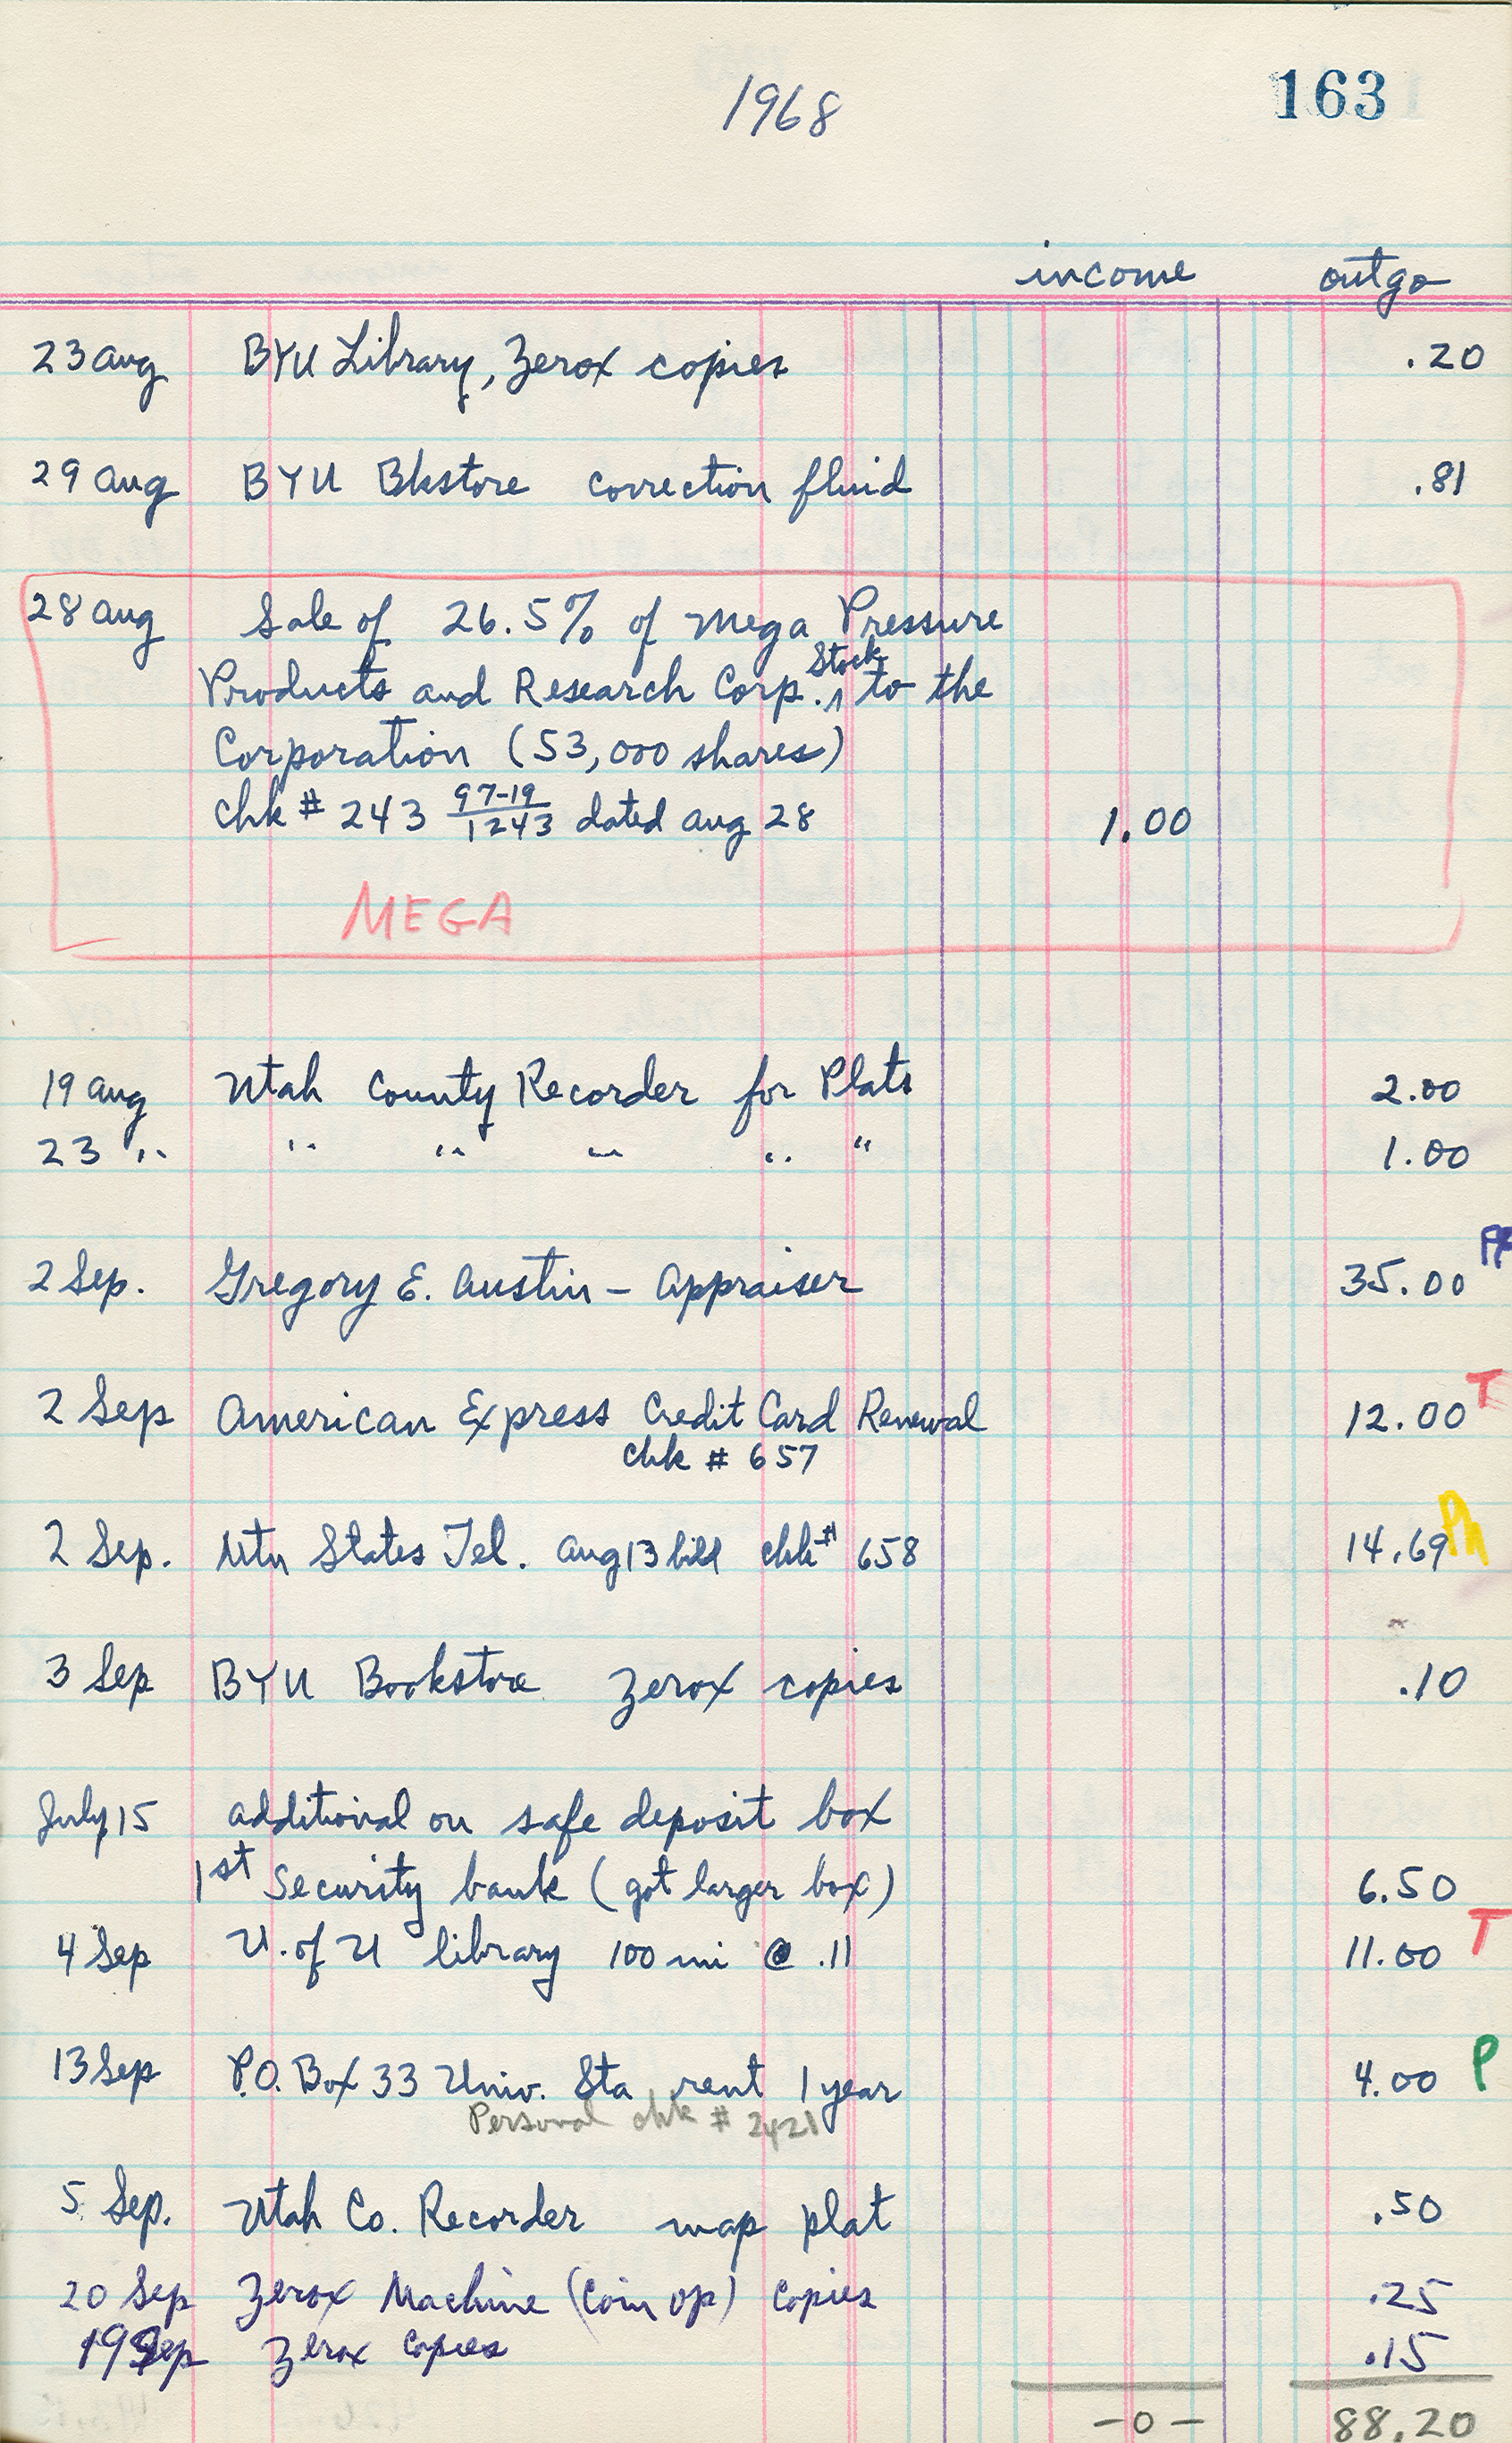 1968
163
income outgo
23 Aug BYU Library, Zerox copies .20
29 Aug BYU Bkstore correction fluid .81
28 Aug Sale of 26.5% of Mega Pressure
Products and Research Corp. Stock to the
Corporation (53,000 shares)
chk # 243 97-19/1243 dated Aug 28 1.00
MEGA
19 Aug Utah County Recorder for Plats 2.00
23 " " " " " " 1.00
2 Sep. Gregory E. Austin - Appraiser 35.00
2 Sep American Express Credit Card Renewal 12.00 T
chk # 657
2 Sep. Mtn States Tel. Aug 13 bill chk # 658 14.69 Ph
3 Sep BYU Bookstore Zerox copies .10
July 15 additional on safe deposit box
1st Security bank (got larger box) 6.50
4 Sep U. of U library 100 mi @ .11 11.00 T
13 Sep P.O. Box 33 Univ. Sta rent 1 year 4.00 P
Personal chk # 2421
5 Sep. Utah Co. Recorder map plat .50
20 Sep Zerox Machine (Coin op) copies .25
19 Sep Zerox copies .15
-0- 88.20